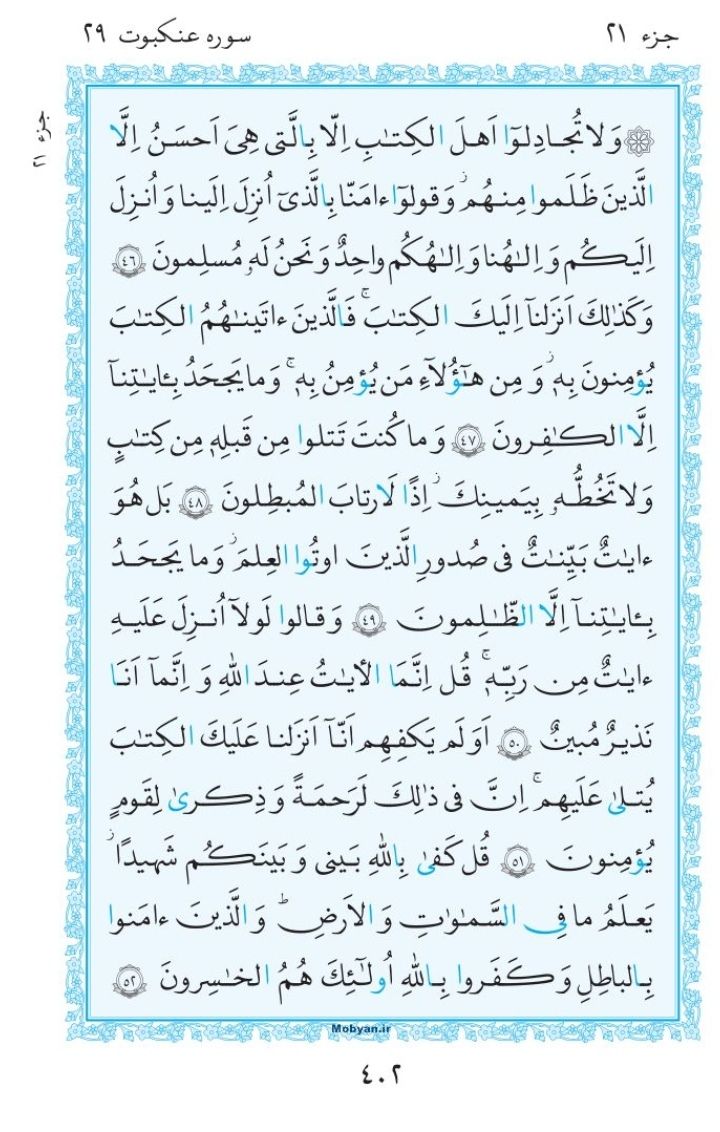 جزء ۲۱
سوره عنکبوت ۲۹
جزء ۲۱
وَلا تُجـادِلوٓا اَهـلَ الكِتـٰبِ اِلّا بِالَّتى هِىَ اَحسَنُ اِلَّا
الَّذينَ ظَلَموا مِنـهُم ۖ وَقولوٓا ءامَنّا بِالَّذىٓ اُنزِلَ اِلَينا وَ اُنـزِلَ
اِلَيكُـم وَ اِلـٰهُنا وَ اِلـٰهُكُم واحِدٌ وَ نَحنُ لَهٗ مُسلِمونَ ﴿٤٦﴾
وَ كَذٰلِكَ اَنزَلنآ اِلَيكَ الكِتـٰبَ ۚ فَالَّذينَ ءاتَينـٰهُمُ الكِتـٰبَ
يُؤمِنونَ بِهٖ ۖ وَ مِن هـٰٓؤُلآءِ مَن يُؤمِنُ بِهٖ ۚ وَ ما يَجحَدُ بِـٔايـٰتِنآ
اِلَّا الكـٰفِرونَ ﴿٤٧﴾ وَ ما كُنتَ تَتلوا مِن قَبلِهٖ مِن كِتـٰبٍ
وَلا تَخُطُّـهٗ بِيَمينِكَ ۖ اِذًا لَارتابَ المُبطِلونَ ﴿٤٨﴾ بَل هُوَ
ءايـٰتٌ بَيِّنـٰتٌ فى صُدورِ الَّذينَ اوتُوا العِلمَ ۚ وَ ما يَجحَـدُ
بِـٔايـٰتِنـآ اِلَّا الظّـٰلِمونَ ﴿٤٩﴾ وَ قـالوا لَولآ اُنـزِلَ عَلَيـهِ
ءايـٰتٌ مِن رَبِّهٖ ۚ قُل اِنَّمَا الأيـٰتُ عِنـدَ اللهِ وَ اِنَّمآ اَنَـا
نَذيـرٌ مُبينٌ ﴿٥٠﴾ اَوَ لَم يَكفِهِم اَنّـآ اَنزَلنـا عَلَيكَ الكِتٰبَ
يُتلىٰ عَلَيهِم ۚ اِنَّ فى ذٰلِكَ لَرَحمَةً وَ ذِكـرىٰ لِقَومٍ
يُؤمِنونَ ﴿٥١﴾ قُل كَفىٰ بِاللهِ بَينى وَ بَينَكُم شَهيدًا ۖ
يَعلَمُ ما فِى السَّمـٰوٰتِ وَ الاَرضِ ۗ وَ الَّذينَ ءامَنوا
بِـالباطِلِ وَ كَفَروا بِـاللهِ اُولـٰٓئِكَ هُمُ الخـٰسِرونَ ﴿٥٢﴾
Mobyan.ir
٤٠٢